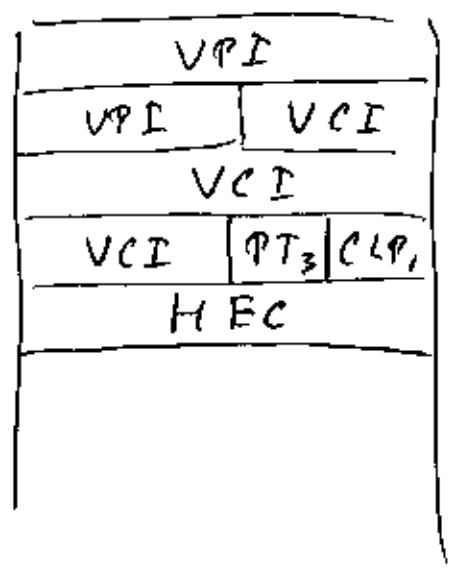 VPI
VPI VCI
VCI
VCI PT3 CLP1
HEC